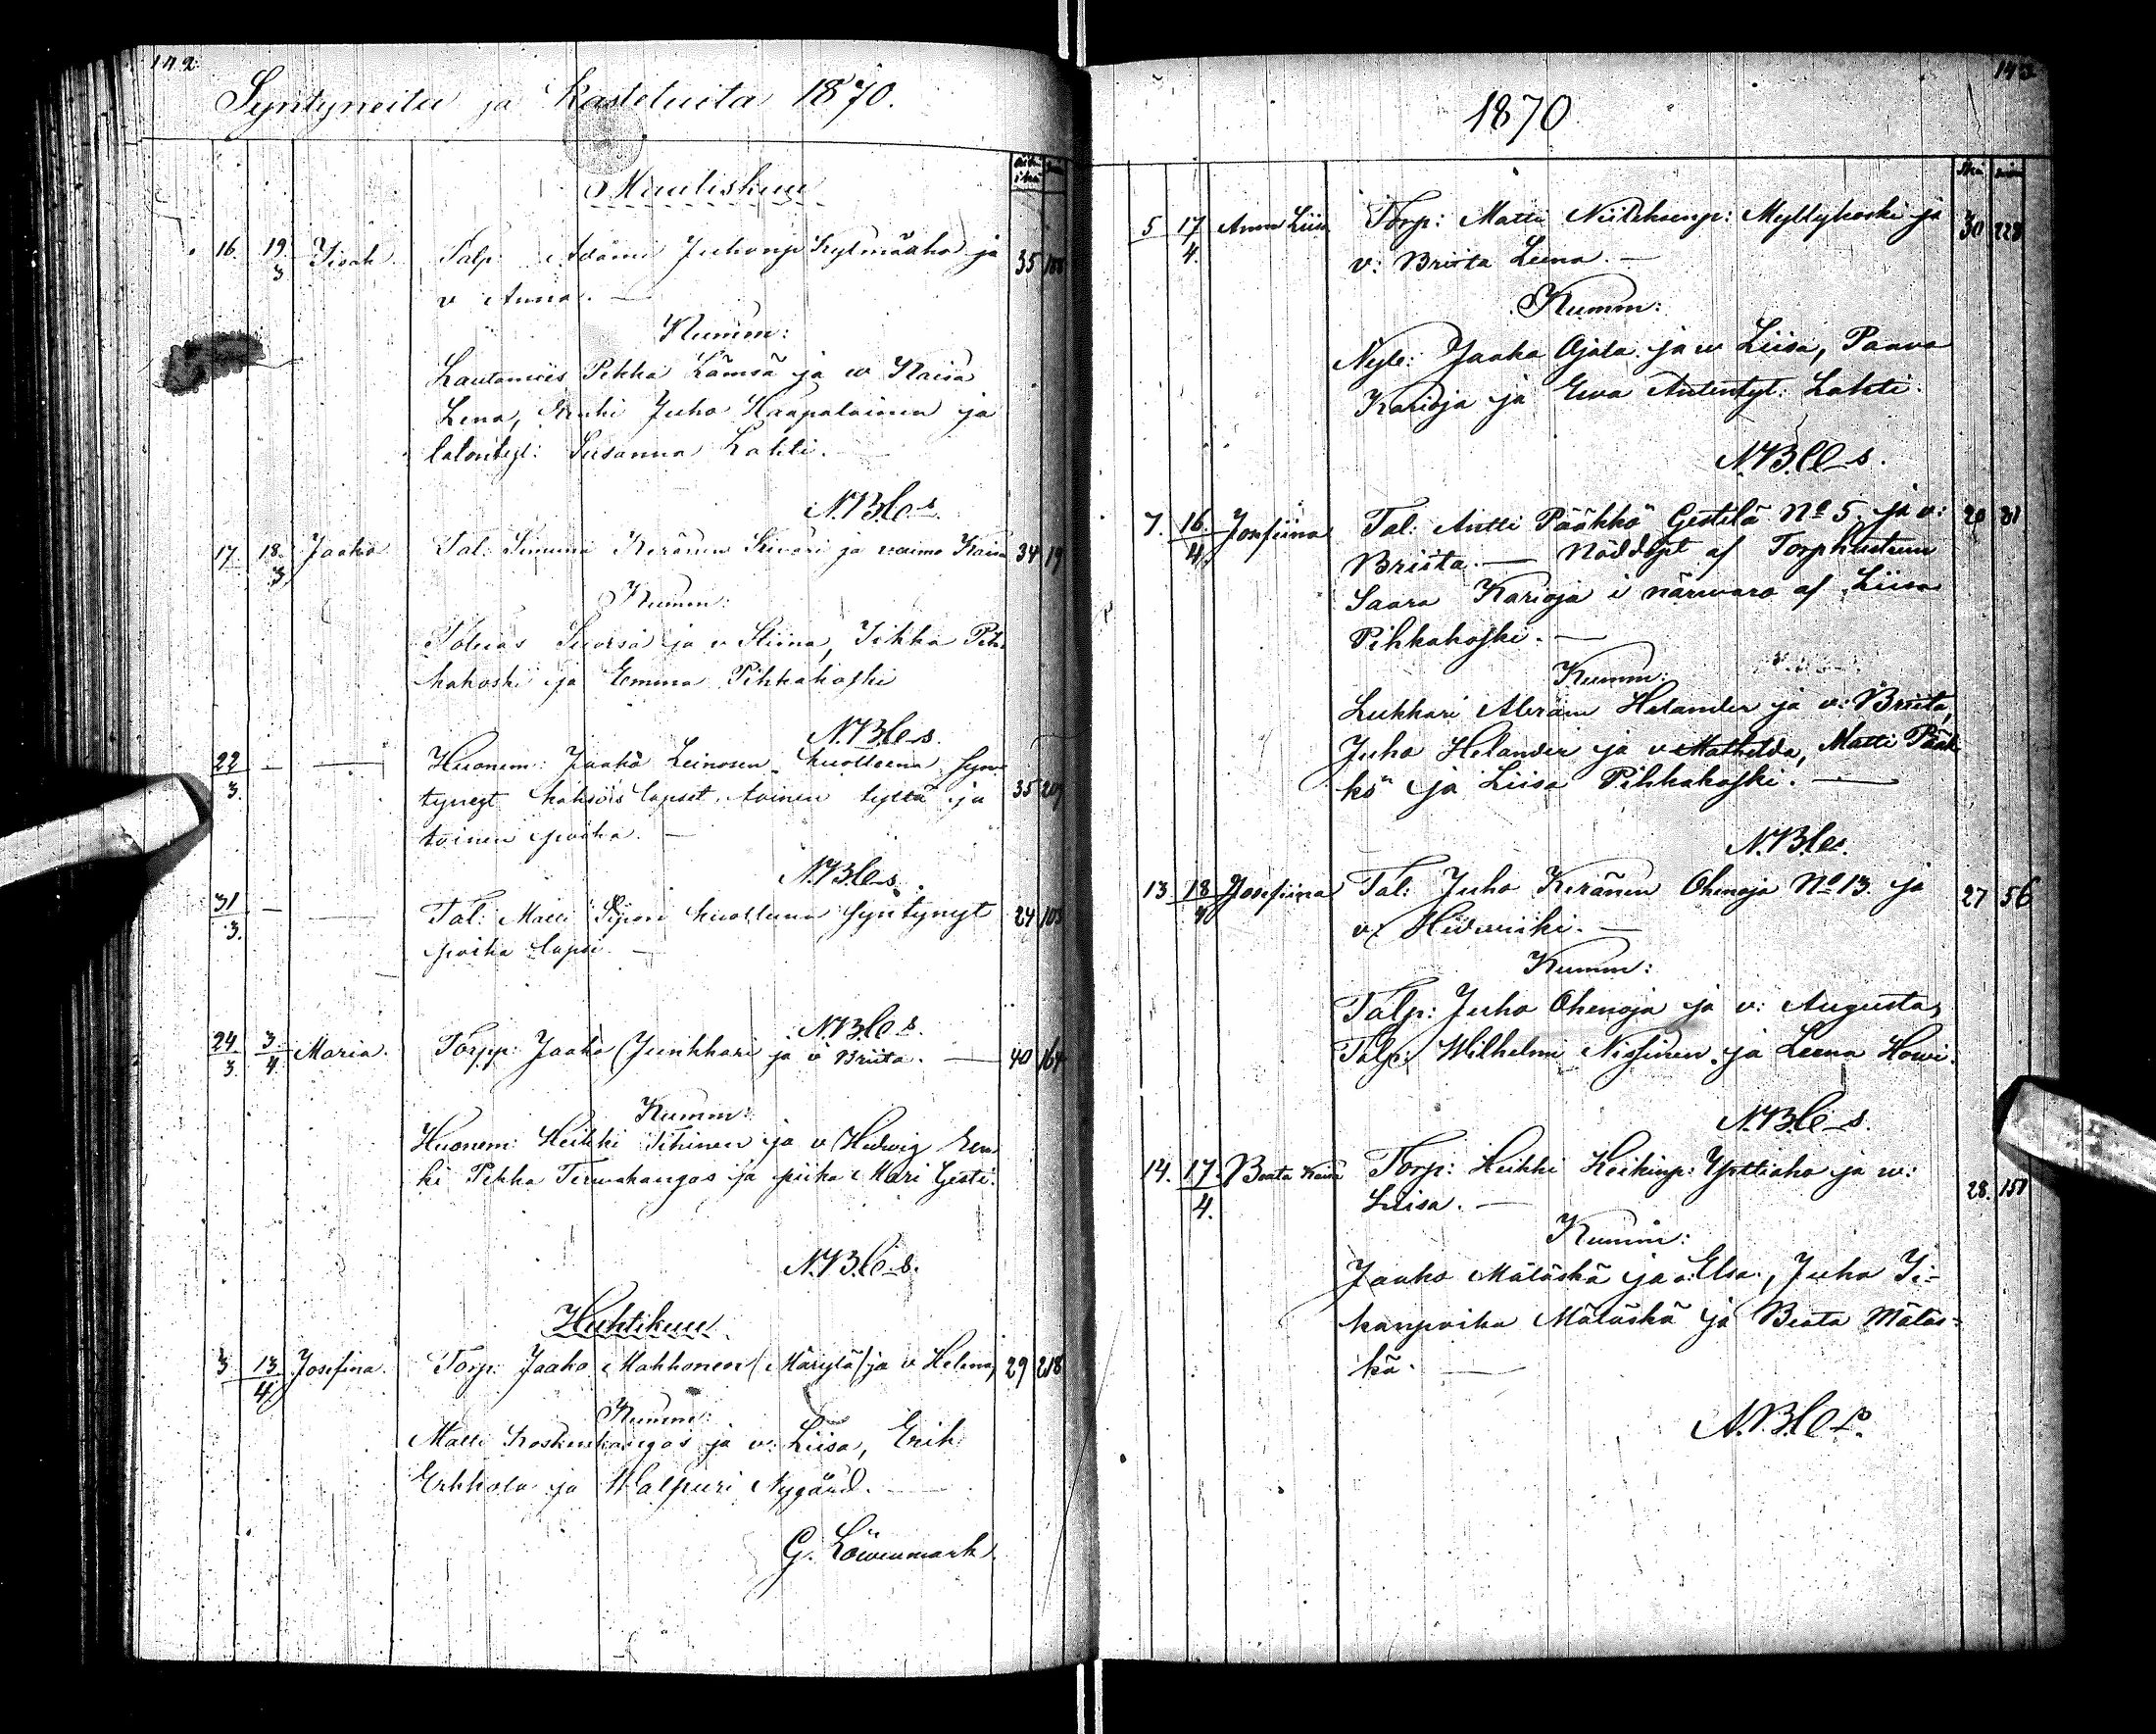 142.
Syntyneitä ja Kastetuita 1870.
Äitin ikä
Maaliskuu
16. 19/3 Isak Talp. Adami Juhonp Kylmäaho ja 35 188
v Anna. —
Kumm:
Lautamies Pekka Lämsä ja w Kaisa
Lena, Renki Juho Haapalainen ja
talontyt: Susanna Lahti. —
N.B.C-s.
17. 18/3 Jaako Tal. Simuna Keränen ja vaimo Kaisa 34 19
Kumm:
Tobias Suorsa ja v Stiina, Iikka Pih
kakoski ja Emma Pihkakoski
N.B.C-s.
22/3. — — Huonem: Jaako Leinosen kuolleena syn-
tynyt kaksois lapset, toinen tyttö ja 35 207
toinen poika. —
N.B.C-s.
31/3. — — Tal: Matti Sipon kuolleena syntynyt 24 103
poika lapsi. —
N.B.C-s.
24/3. 3/4. Maria. Torpp: Jaako Junkkari ja v Briita. — 40 164
Kumm:
Huonem: Heikki Tihinen ja v Hedwig Ren
ki Pekka Terwakangas ja piika Mari Gesti.
N.B.C-s.
Huhtikuu
3 13/4. Josefina. Torp: Jaako Mahhonen (Märylä) ja v Helena, 29 218
Kumm:
Matti Koskenkangas ja w: Liisa, Erik
Erkkola ja Walpuri Nygård. —
G. Löwenmark
143
1870
Ikä sivu
5 17/4. Anna Liisa Torp: Matti Niileksenp: Myllykoski ja 30 228
v: Briita Leena. —
Kumm:
Nyb: Jaako Ojala ja w Liisa, Paavo
Karioja ja Ewa Antintyt: Lahti.
N.B.C-s.
7. 16/4. Josefiina Tal: Antti Pääkkö Gestilä No 5. ja v: 20 81
Briita. — Nöddöpt af Torphustrun
Saara Karioja i närwaro af Liisa
Pihkakoski. —
Kumm:
Lukkari Abram Helander ja v: Briita,
Juho Helander ja v Mathilda, Matti Pääk
kö ja Liisa Pihkakoski. —
N.B.C-s.
13. 18/4 Josefiina Tal: Juho Keränen Ohenoja No 13. ja 27 56
v: Hedwiiki. —
Kumm:
Talp: Juho Ohenoja ja v: Augusta,
Talp: Wilhelmi Nissinen ja Leena Howi.
N.B.C-s.
14. 17/4. Beata Kaisa Torp: Heikki Heikinp: Ypttiaho ja w: 28. 151
Liisa. —
Kumm:
Jaako Mätäskä ja v: Elsa, Juho Ii-
kanpoika Mätäskä ja Beata Mätäs-
kä. —
N.B.C-s.